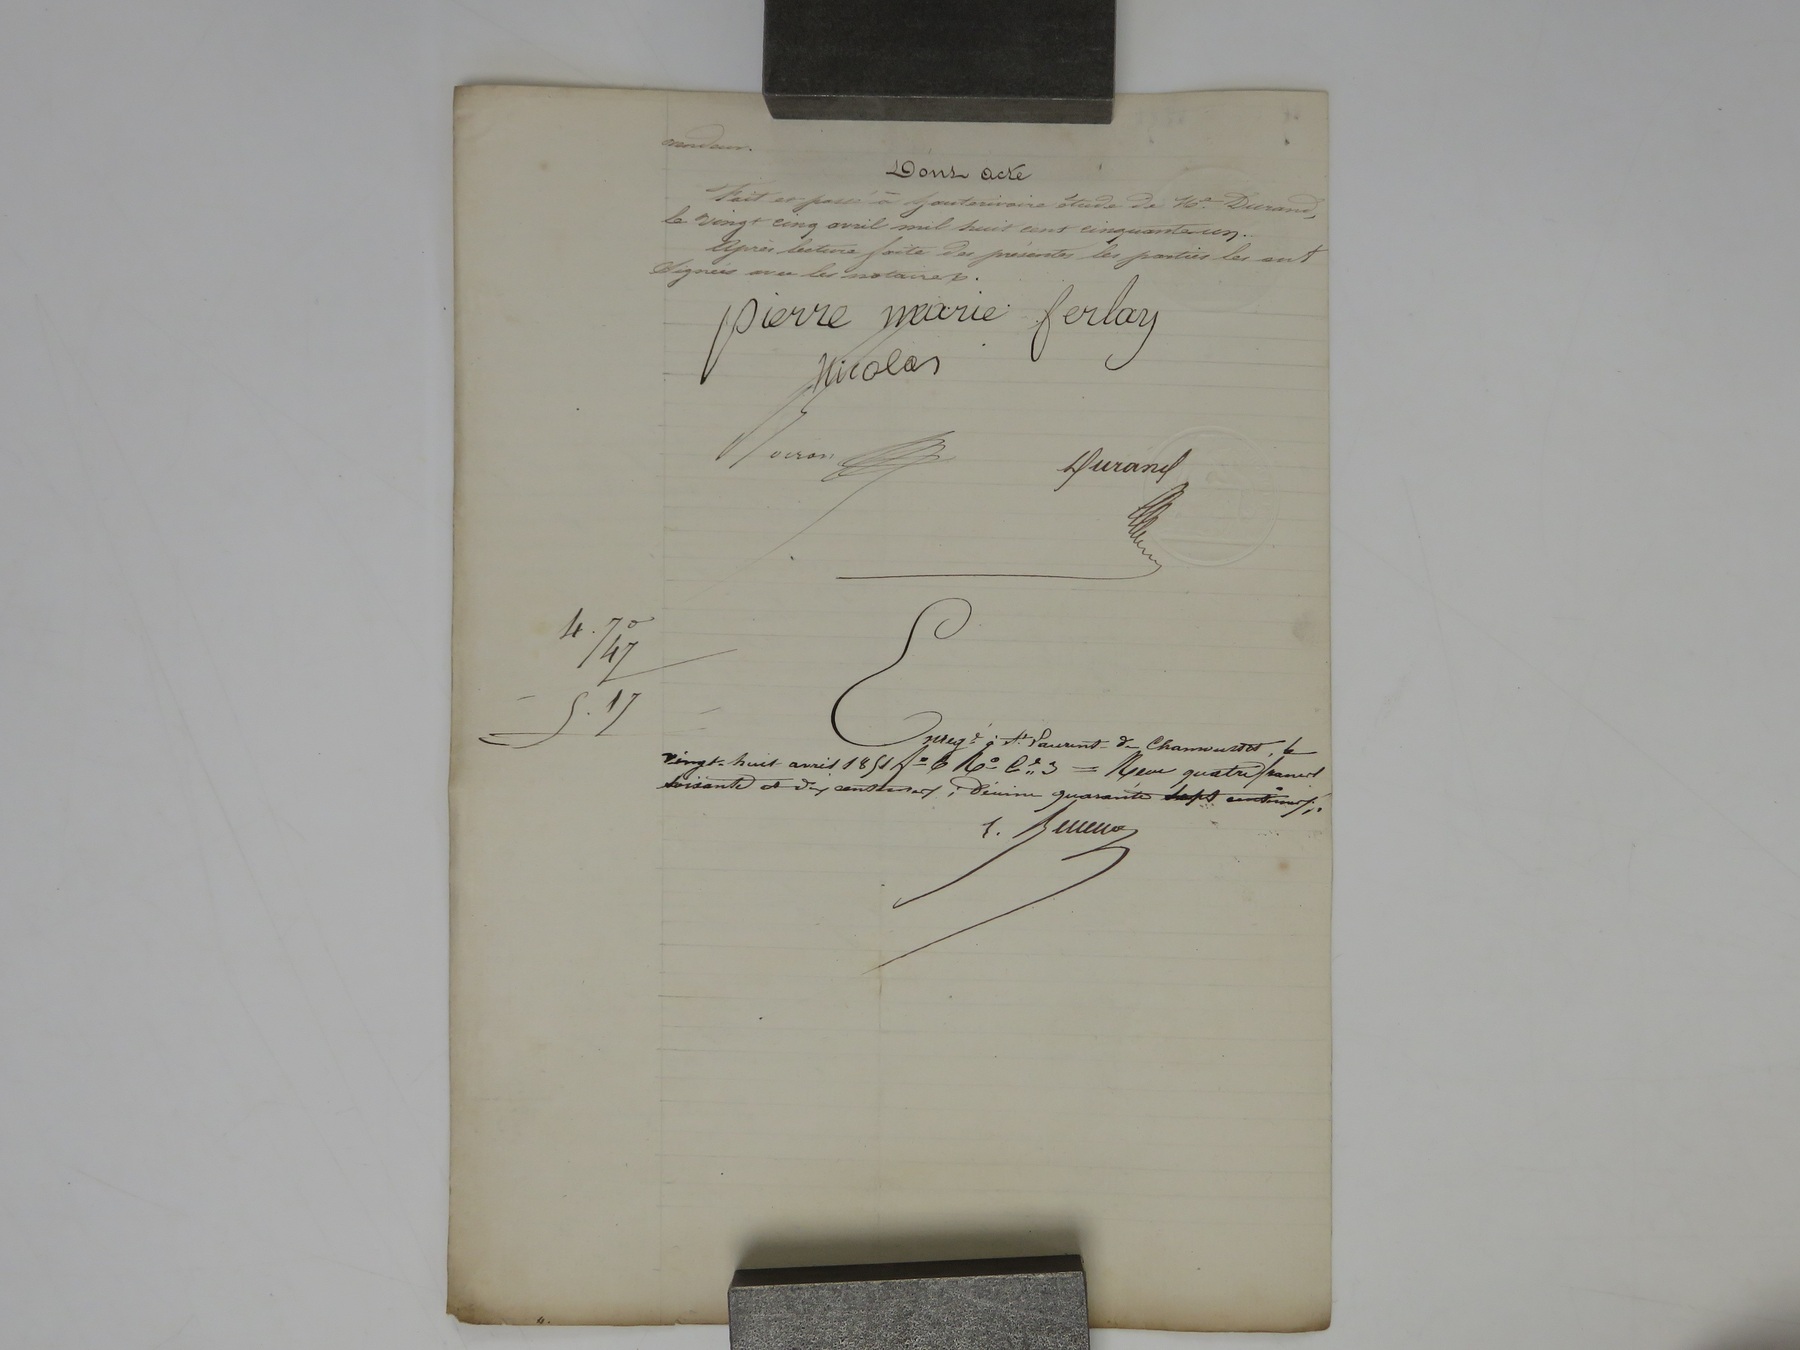 vendeur.
Dont acte
Fait et passé à hauterivoire étude de Me Durand,
le vingt cinq avril mil huit cent cinquante un.
Après lecture faite des présentes les parties les ont
signées avec les notaires.
pierre marie ferlay
nicolas
Durand
4.70
47
5.17
Enregé à St Laurent de Chamousset, le
vingt-huit avril 1851 fo 6 Ro Ce 3 = Reçu quatre francs
soixante et dix centimes; décime quarante sept centimes;